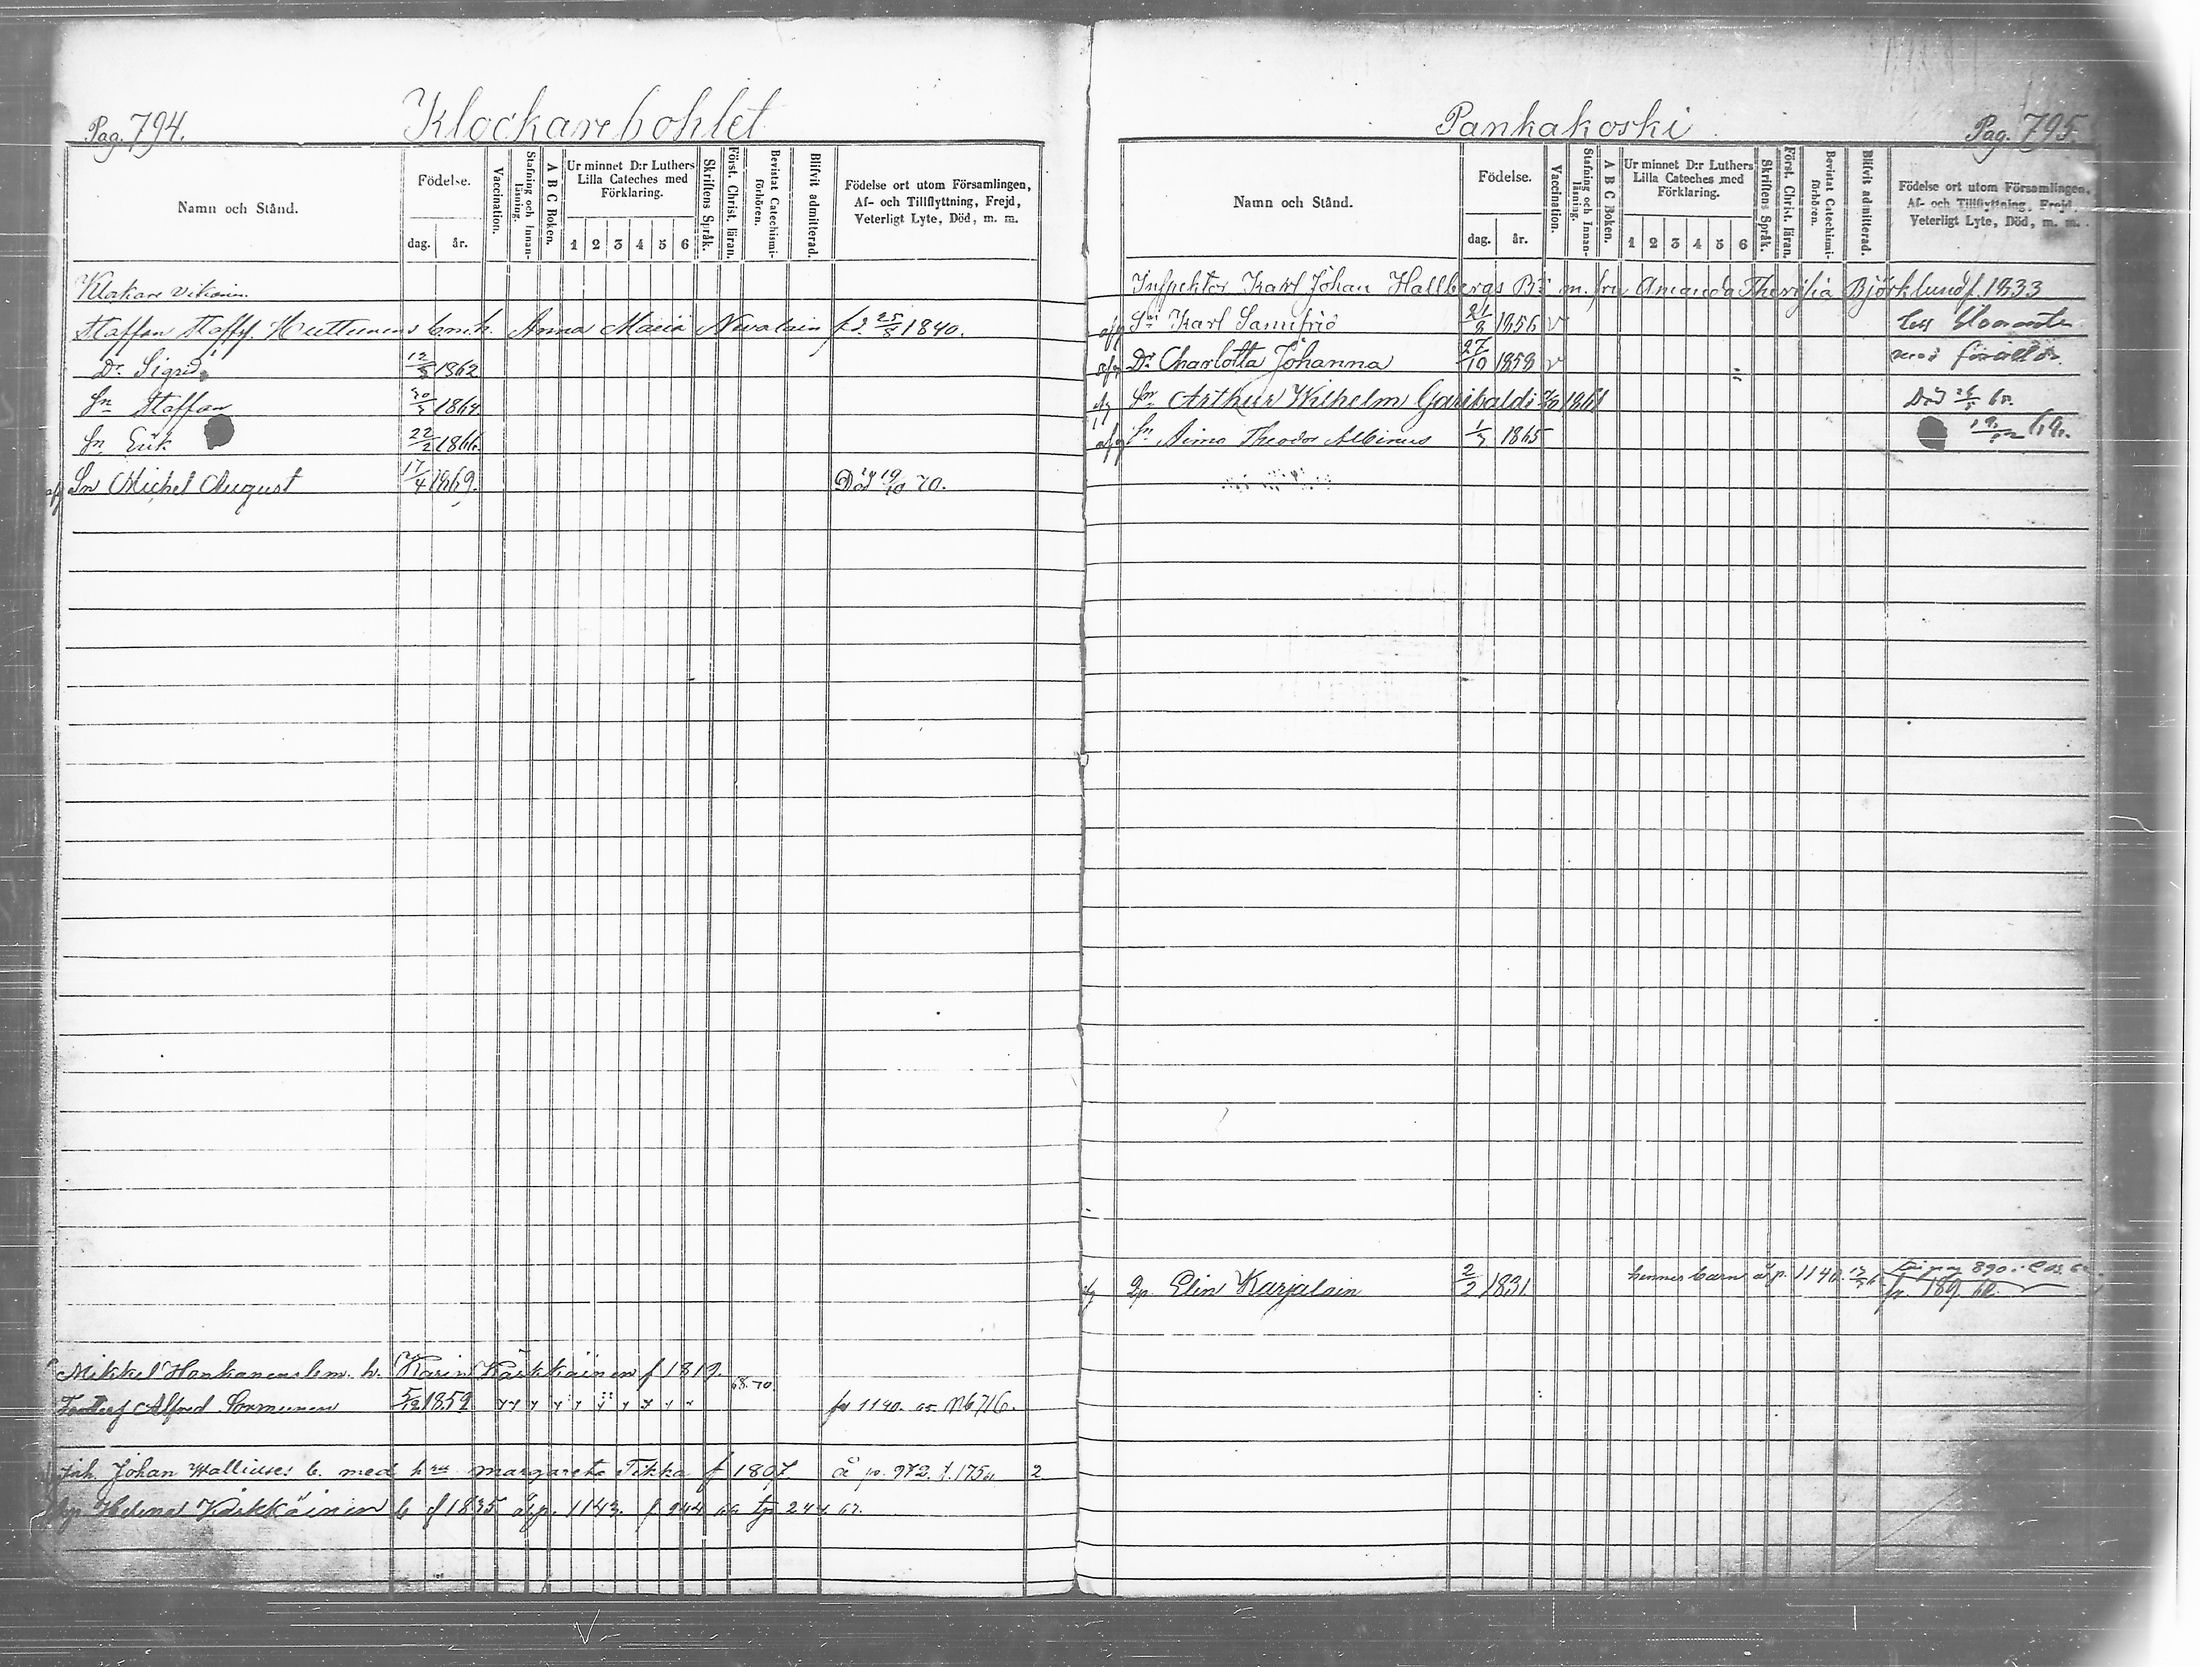 Pag. 794.
Klockarebohlet
Namn och Stånd.
Födelse.
dag.
år.
Vaccination.
Stafning och Innan-
läsning.
A B C Boken.
Ur minnet D:r Luthers
Lilla Cateches med
Förklaring.
1 2 3 4 5 6
Skriftens Språk.
Först. Christ. läran.
Bevistat Catechismi-
förhören.
Blifvit admitterad.
Födelse ort utom Församlingen,
Af- och Tillflyttning, Frejd,
Veterligt Lyte, Död, m. m.
Klockare
Staffan Staffs. Huttunens b. m. h. Anna Maria Nevalain 25/8 1840.
Dr. Sigrid 1862
Sn Staffan 1864
Sn Erik 22/2 1866
Sn Michel August 17/4 1869. Död 19/10 70.
Mikkel Honkanens b. m. h. Karin Käkkäinen f 1819.
68.70
Alfred Sormunen 5/12 1859 fr 1140. 65. N6716.
Inh. Johan Walliuses b. med hru Margareta Tikka f 1807 å p. 972. 2
Helena Käkkäinen b f 1835 å p. 1143. f. 944 66. tp 244 67.
Pankakoski
Pag. 795.
Namn och Stånd.
Födelse.
dag.
år.
Vaccination.
Stafning och Innan-
läsning.
A B C Boken.
Ur minnet D:r Luthers
Lilla Cateches med
Förklaring.
1 2 3 4 5 6
Skriftens Språk.
Först. Christ. läran.
Bevistat Catechismi-
förhören.
Blifvit admitterad.
Födelse ort utom Församlingen,
Af- och Tillflyttning, Frejd,
Veterligt Lyte, Död, m. m.
Inspektor Karl Johan Hallbergs m. fru Amanda Theresia Björklund f. 1833
Sn Karl Samfrid 21/8 1856 v
Dr Charlotta Johanna 27/10 1858 v med föräld
Sn Arthur Wilhelm Garibaldi 1861 Död
Sn Aimo Theodor Albinus 1865
Elin Karjalain 2/2 1831. hennes barn å p. 1140.